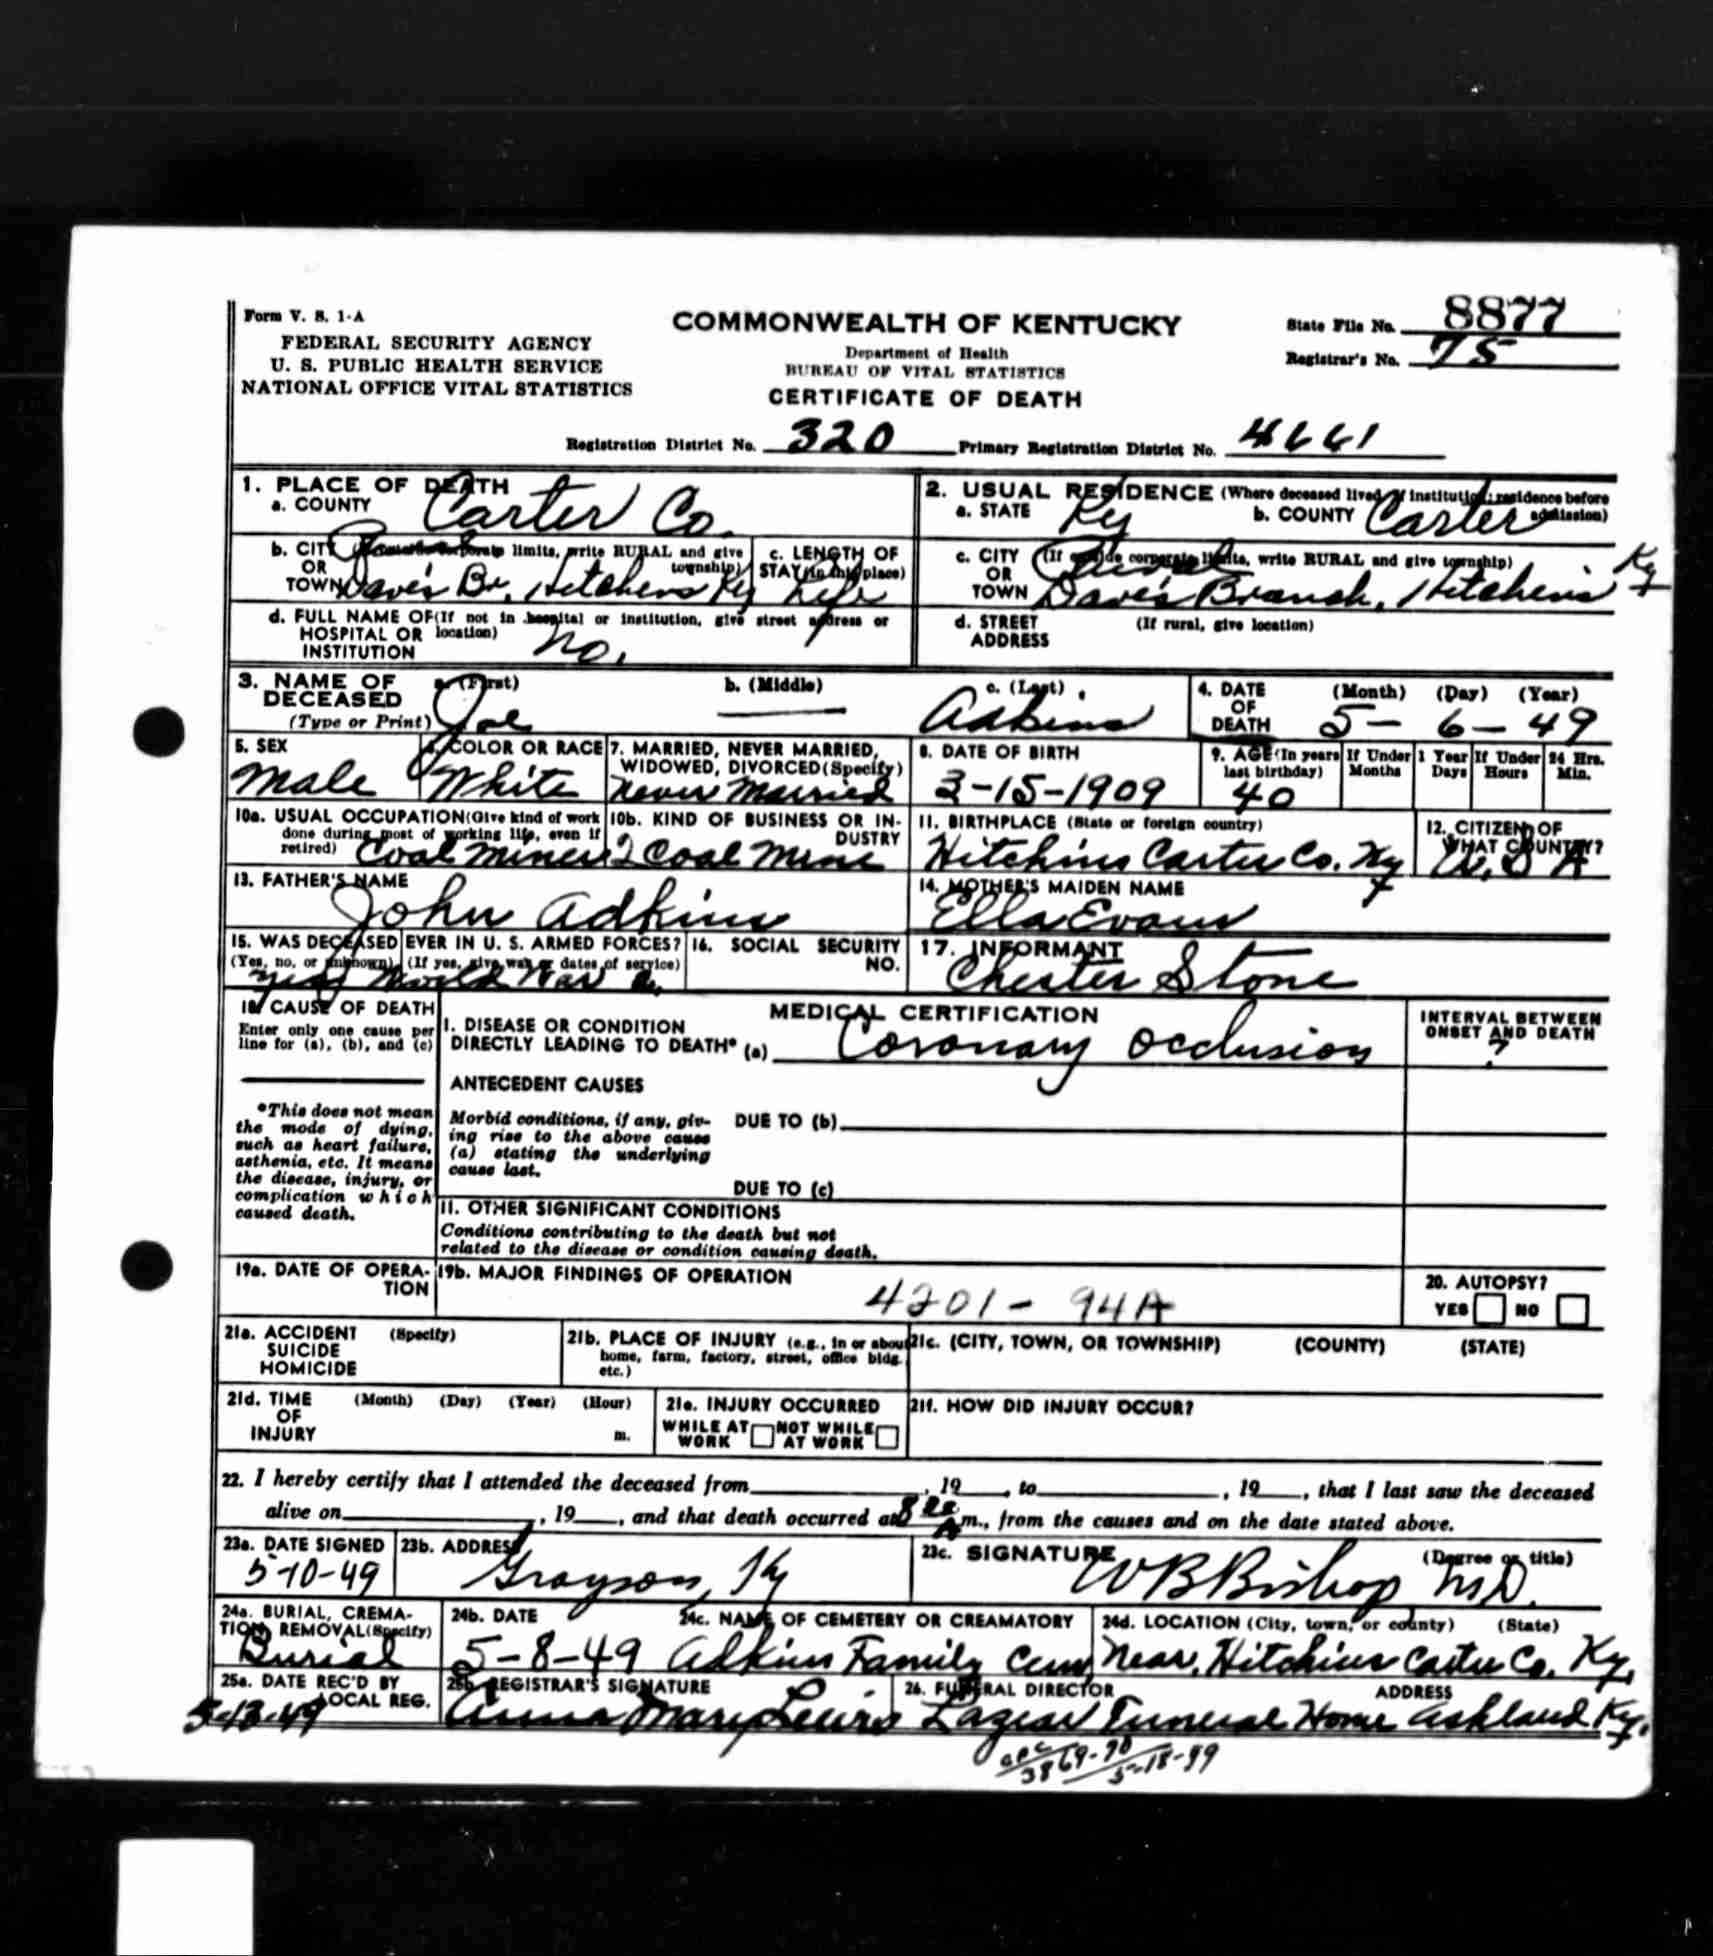 Form V. S. 1-A
FEDERAL SECURITY AGENCY
U. S. PUBLIC HEALTH SERVICE
NATIONAL OFFICE VITAL STATISTICS
COMMONWEALTH OF KENTUCKY
Department of Health
BUREAU OF VITAL STATISTICS
CERTIFICATE OF DEATH
State File No. 8877
Registrar's No. 75
Registration District No. 320 Primary Registration District No. 4661
1. PLACE OF DEATH
a. COUNTY Carter Co.
b. CITY OR TOWN (If outside corporate limits, write RURAL and give township) Rural
Davis Br, Hitchens Ky
c. LENGTH OF STAY (in this place) Life
d. FULL NAME OF HOSPITAL OR INSTITUTION (If not in hospital or institution, give street address or location) no.
2. USUAL RESIDENCE (Where deceased lived. If institution: residence before admission)
a. STATE Ky b. COUNTY Carter
c. CITY OR TOWN (If outside corporate limits, write RURAL and give township) Rural
Davis Branch, Hitchins Ky
d. STREET ADDRESS (If rural, give location)
3. NAME OF DECEASED (Type or Print)
a. (First) Joe b. (Middle) — c. (Last) Adkins
4. DATE OF DEATH (Month) (Day) (Year) 5- 6- 49
5. SEX Male
6. COLOR OR RACE White
7. MARRIED, NEVER MARRIED, WIDOWED, DIVORCED (Specify) Never Married
8. DATE OF BIRTH 3-15-1909
9. AGE (In years last birthday) 40
If Under 1 Year Months Days
If Under 24 Hrs. Hours Min.
10a. USUAL OCCUPATION (Give kind of work done during most of working life, even if retired) Coal Miner
10b. KIND OF BUSINESS OR INDUSTRY Coal Mine
11. BIRTHPLACE (State or foreign country) Hitchins Carter Co. Ky
12. CITIZEN OF WHAT COUNTRY? U. S A
13. FATHER'S NAME John Adkins
14. MOTHER'S MAIDEN NAME Ella Evans
15. WAS DECEASED EVER IN U. S. ARMED FORCES?
(Yes, no, or unknown) (If yes, give war or dates of service)
yes World War
16. SOCIAL SECURITY NO.
17. INFORMANT Chester Stone
18. CAUSE OF DEATH
Enter only one cause per line for (a), (b), and (c)
*This does not mean the mode of dying, such as heart failure, asthenia, etc. It means the disease, injury, or complication which caused death.
MEDICAL CERTIFICATION
INTERVAL BETWEEN ONSET AND DEATH
I. DISEASE OR CONDITION DIRECTLY LEADING TO DEATH* (a) Coronary Occlusion ?
ANTECEDENT CAUSES
Morbid conditions, if any, giving rise to the above cause (a) stating the underlying cause last.
DUE TO (b)
DUE TO (c)
II. OTHER SIGNIFICANT CONDITIONS
Conditions contributing to the death but not related to the disease or condition causing death.
19a. DATE OF OPERATION
19b. MAJOR FINDINGS OF OPERATION
4201 - 94A
20. AUTOPSY?
YES NO
21a. ACCIDENT SUICIDE HOMICIDE (Specify)
21b. PLACE OF INJURY (e.g., in or about home, farm, factory, street, office bldg. etc.)
21c. (CITY, TOWN, OR TOWNSHIP) (COUNTY) (STATE)
21d. TIME OF INJURY (Month) (Day) (Year) (Hour) m.
21e. INJURY OCCURRED
WHILE AT WORK NOT WHILE AT WORK
21f. HOW DID INJURY OCCUR?
22. I hereby certify that I attended the deceased from , 19 , to , 19 , that I last saw the deceased
alive on , 19 , and that death occurred at 8 00 A m., from the causes and on the date stated above.
23a. DATE SIGNED 5-10-49
23b. ADDRESS Grayson, Ky
23c. SIGNATURE (Degree or title) W B Bishop M.D.
24a. BURIAL, CREMATION, REMOVAL (Specify) Burial
24b. DATE 5-8-49
24c. NAME OF CEMETERY OR CREAMATORY Adkins Family Cem
24d. LOCATION (City, town, or county) (State) Near, Hitchins Carter Co. Ky.
25a. DATE REC'D BY LOCAL REG. 5-13-49
25b. REGISTRAR'S SIGNATURE Anna Mary Lewis
26. FUNERAL DIRECTOR ADDRESS
Lazear Funeral Home Ashland Ky.